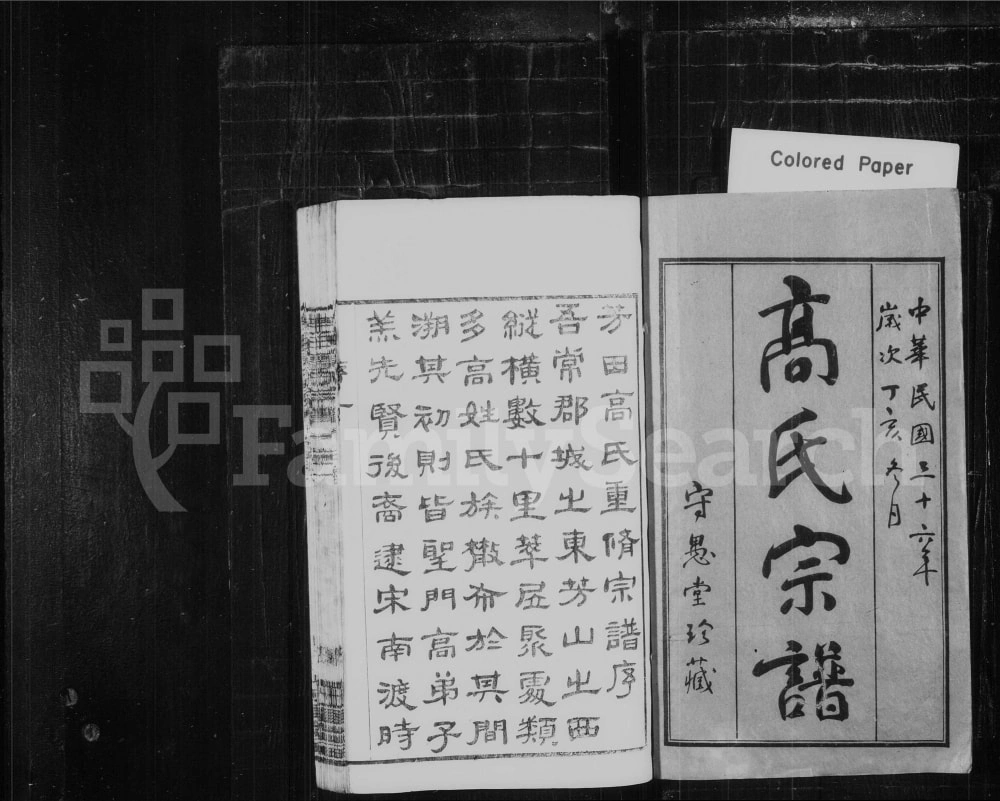 Colored Paper
中華民國三十六年
歲次丁亥冬月
高氏宗譜
守愚堂珍藏
芳田高氏重脩宗譜序
吾常郡城之東芳山之西
縱橫數十里萃居聚處類
多高姓氏族散布於其間
溯其初則皆聖門高弟子
羔先賢後裔逮宋南渡時
FamilySearch